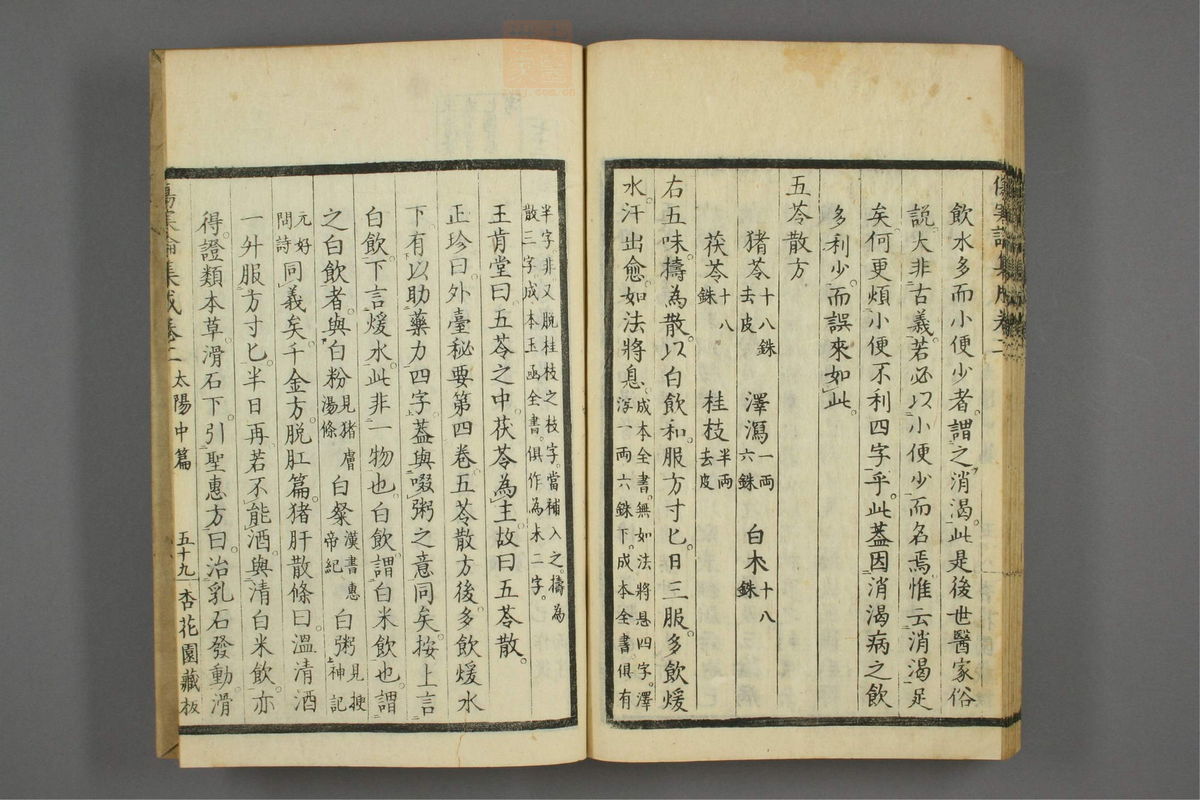 飲水多而小便少者。謂之消渴。此是後世醫家俗
說。大非古義。若必以小便少而名焉。惟云消渴足
矣。何更煩小便不利四字乎。此蓋因消渴病之飲
多利少。而誤來如此。
五苓散方
猪苓十八銖去皮 澤瀉一兩六銖 白朮十八銖
茯苓十八銖 桂枝半兩去皮
右五味。擣為散。以白飲和。服方寸匕。日三服。多飲煖
水。汗出愈。如法將息。成本全書。無如法將息四字。澤瀉一兩六銖下。成本全書。俱有
半字。非。又脫桂枝之枝字。當補入之。擣為散三字。成本玉函全書。俱作為末二字。
王肯堂曰。五苓之中。茯苓為主。故曰五苓散。
正珍曰。外臺秘要第四卷。五苓散方後。多飲煖水
下。有以助藥力四字。蓋與啜粥之意同矣。按上言
白飲。下言煖水。此非一物也。白飲。謂白米飲也。謂
之白飲者。與白粉見猪膚湯條白粲漢書惠帝紀白粥見搜神記上
元好問詩同義矣。千金方。脫肛篇。猪肝散條曰。溫清酒
一升。服方寸匕。半日再。若不能酒。與清白米飲。亦
得。證類本草。滑石下。引聖惠方曰。治乳石發動。滑
傷寒論集成卷二 太陽中篇 五十九 杏花園藏板